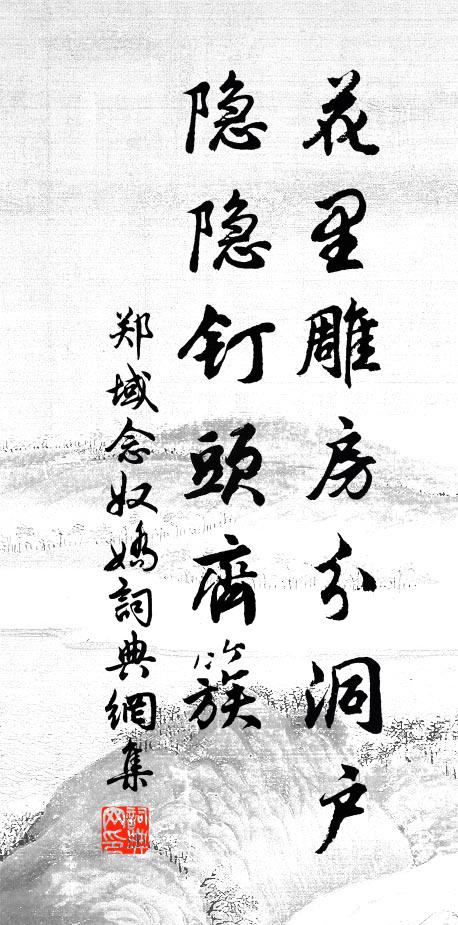 花里雕房分洞户
隐隐钉頭齊簇
郑域念奴嬌詞典網集